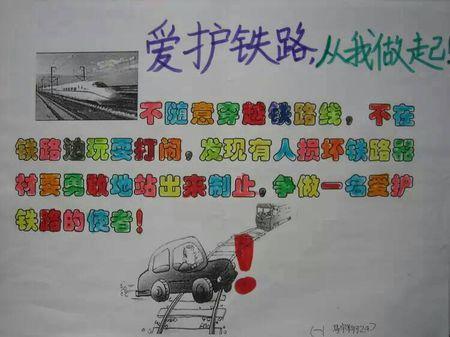 爱护铁路,从我做起!
不随意穿越铁路线，不在
铁路边玩耍打闹，发现有人损坏铁路器
材要勇敢地站出来制止，争做一名爱护
铁路的使者！
!